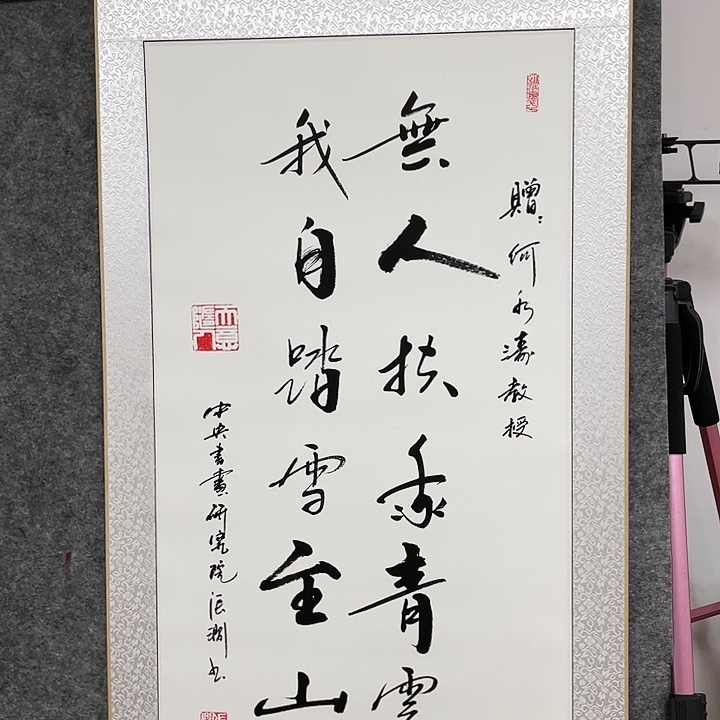 贈：何永濤教授
無人扶我青雲
我自踏雪至山
中央書畫研究院張 书